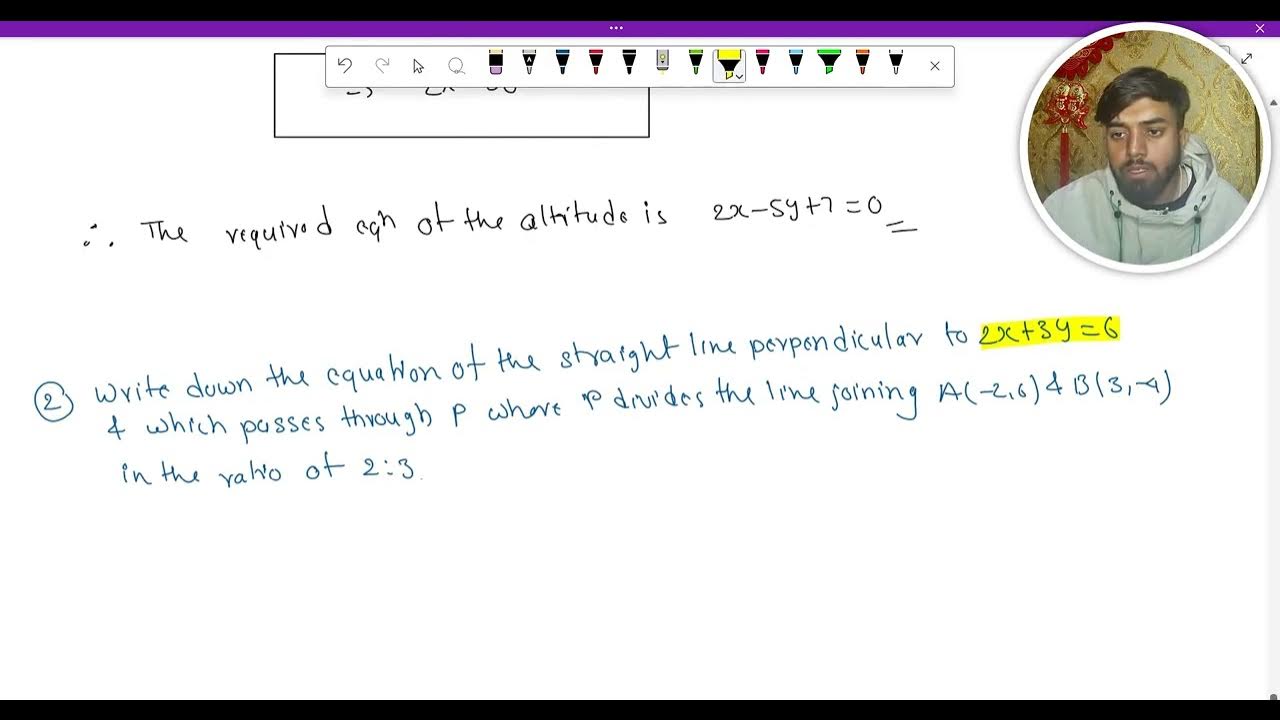 ∴ The required eqn of the altitude is 2x-5y+7=0
② Write down the equation of the straight line perpendicular to 2x+3y=6
& which passes through P where P divides the line joining A(-2,6) & B(3,-4)
in the ratio of 2:3.